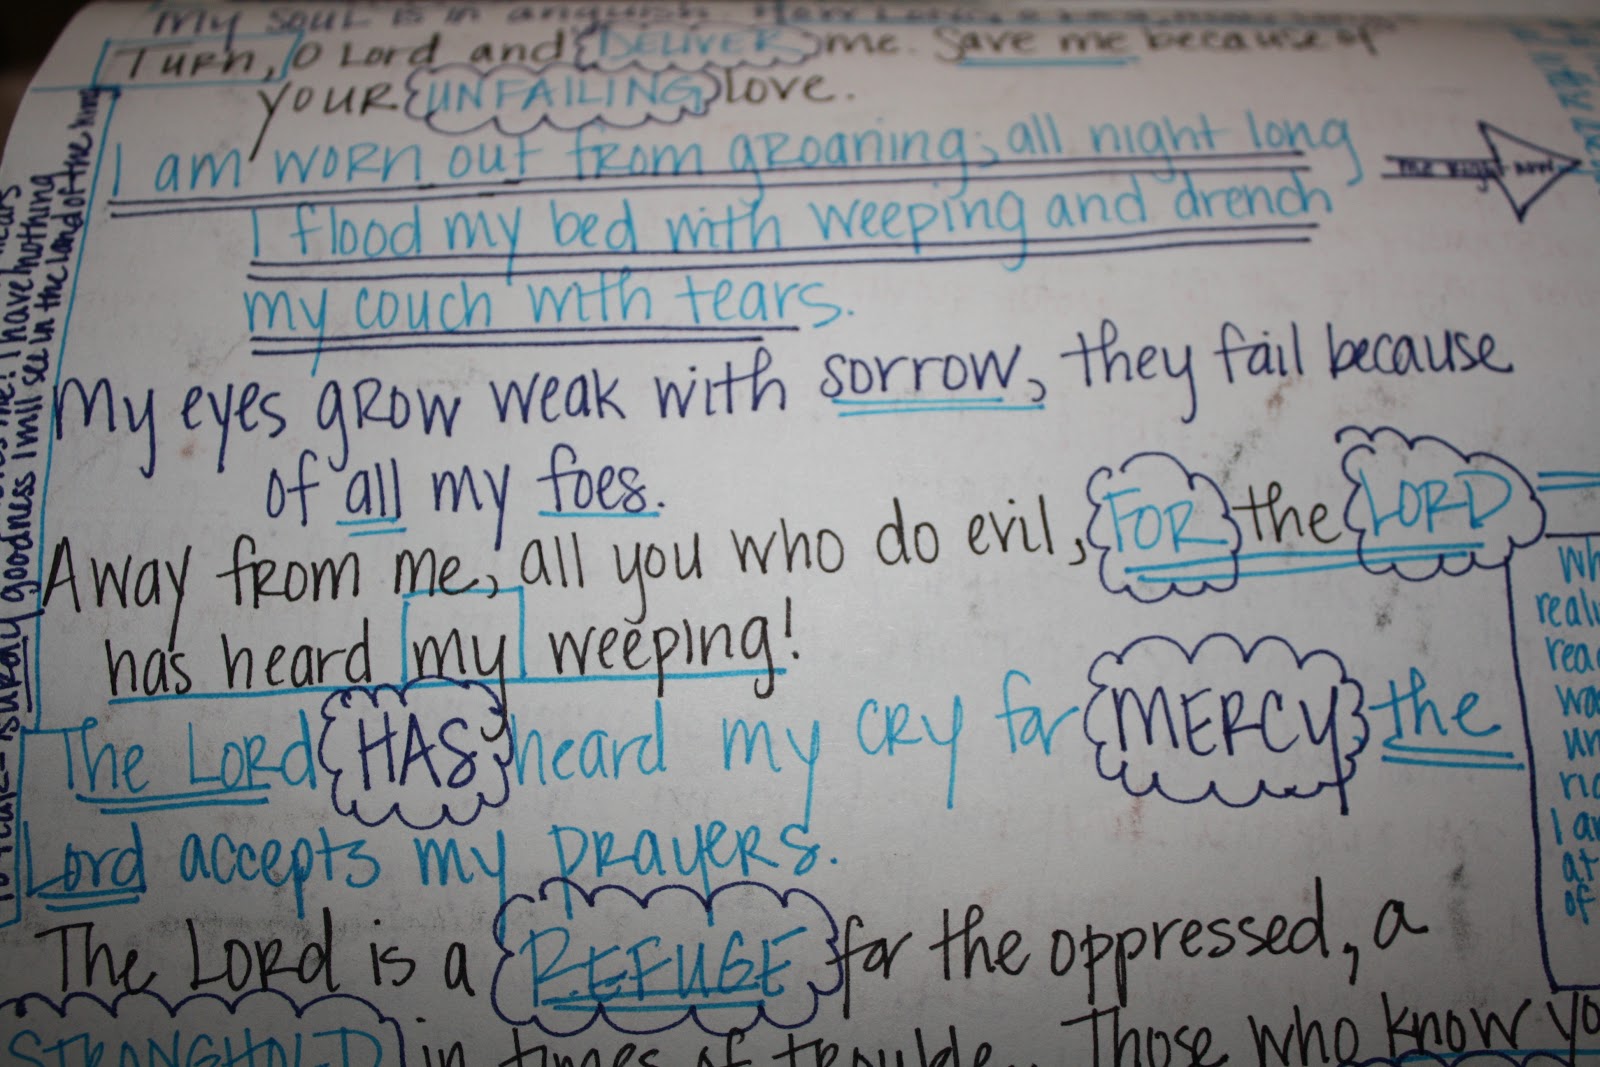 My soul is in anguish. How
Turn, O Lord and DELIVER me. Save me because of
your UNFAILING love.
I am worn out from groaning, all night long
me right now
I flood my bed with weeping and drench
my couch with tears.
My eyes grow weak with sorrow, they fail because
of all my foes.
Away from me, all you who do evil, FOR the LORD
has heard my weeping!
The Lord HAS heard my cry for MERCY the
Lord accepts my prayers.
The Lord is a REFUGE for the oppressed, a
STRONGHOLD in times of trouble. Those who know yo
goodness I will see in the land of the
I have nothing
I am
at
of